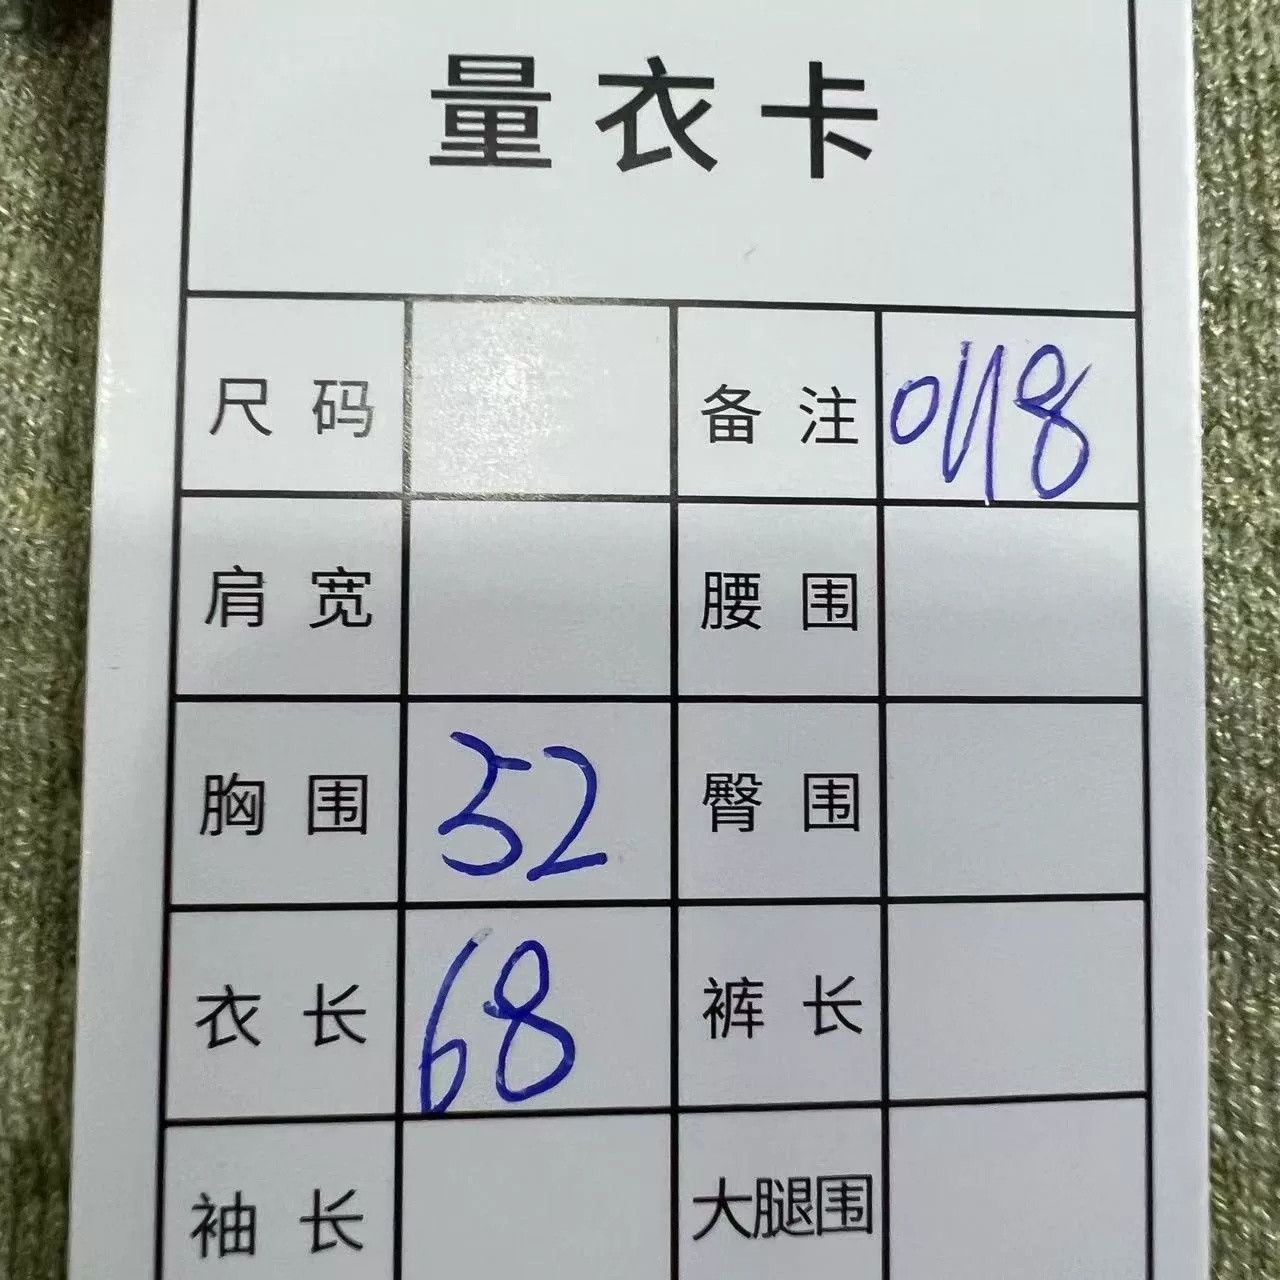 量衣卡
尺码 备注 0118
肩宽 腰围
胸围 52 臀围
衣长 68 裤长
袖长 大腿围